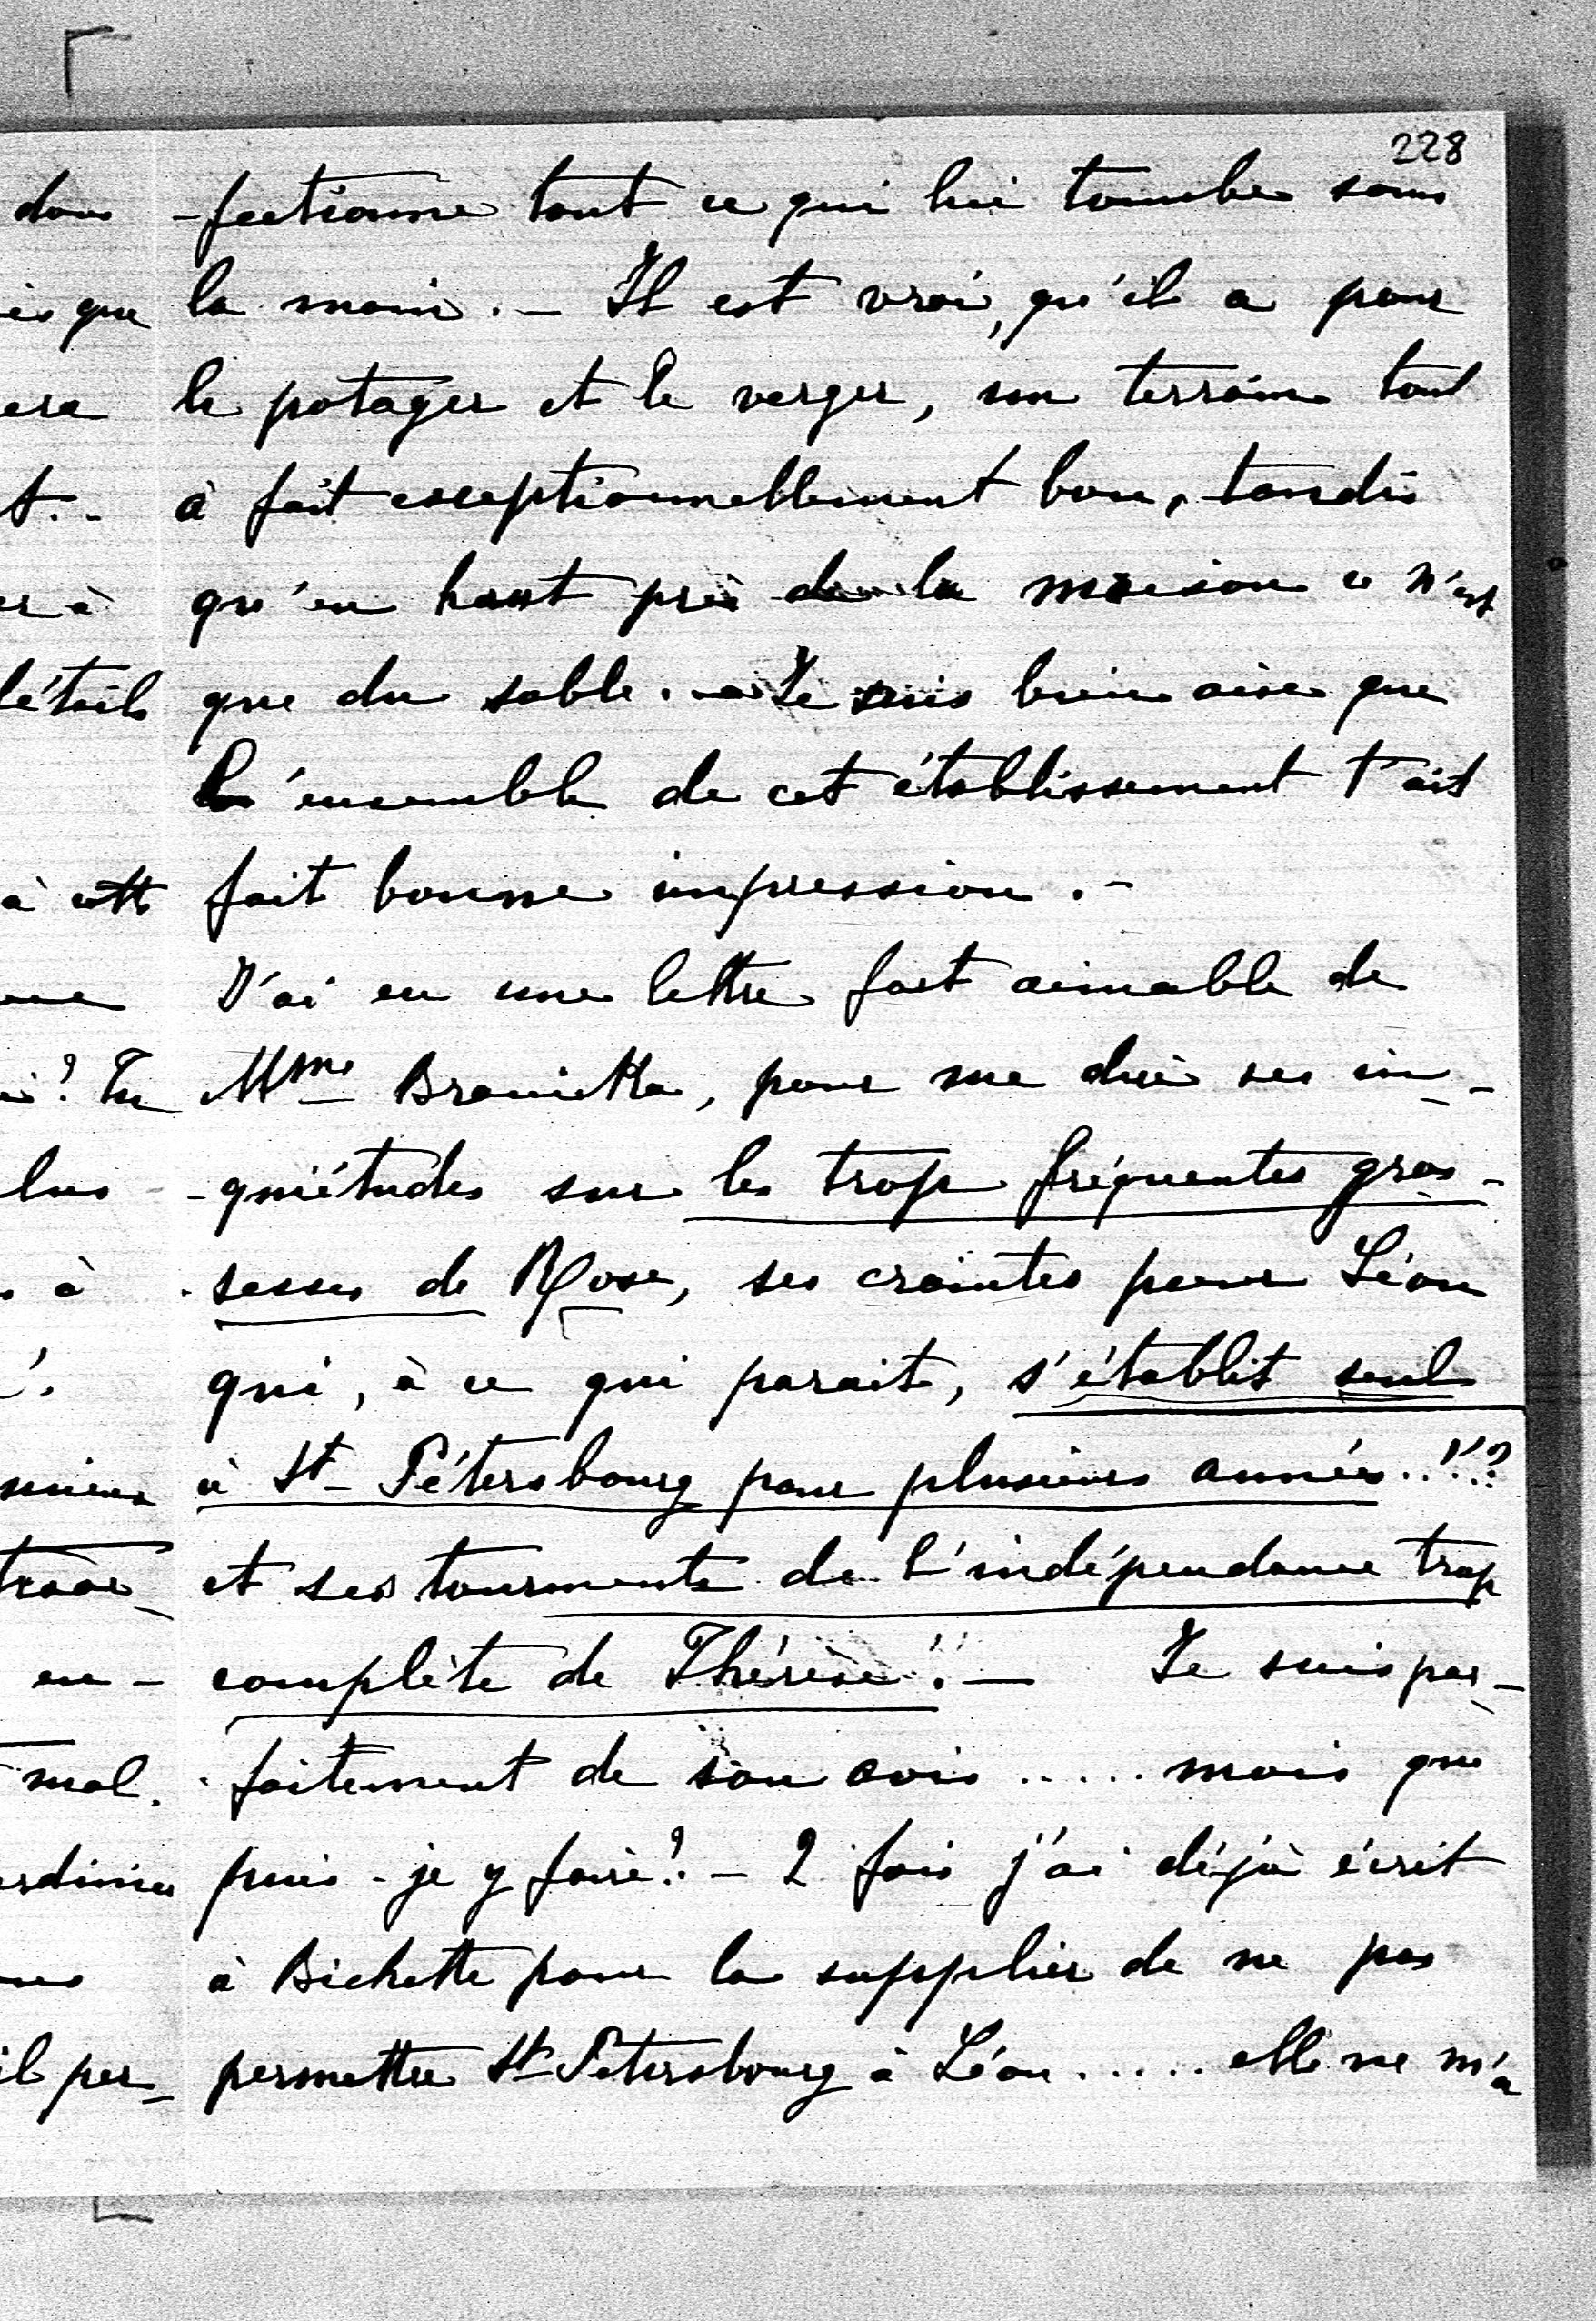 228
-fectionne tout ce qui lui tombe sous
la main. — Il est vrai, qu'il a pour
le potager et le verger, un terrain tout
à fait exceptionnellement bon, tandis
qu'en haut près de la maison ce n'est
que du sable. — Je suis bien aise que
l'ensemble de cet établissement t'ait
fait bonne impression. —
J'ai eu une lettre fort aimable de
Mme Branicka, pour me dire ses in-
-quiétudes sur les trop fréquentes gros-
-sesses de Rose, ses craintes pour Léon
qui, à ce qui parait, s'établit seul
à St-Pétersbourg pour plusieurs années..!!?
et ses tourments de l'indépendance trop
complète de Thérèse!! — Je suis par-
-faitement de son avis ..... mais que
puis-je y faire? — 2 fois j'ai déjà écrit
à Bichette pour la supplier de ne pas
permettre St-Petersbourg à Léon ..... elle ne m'a